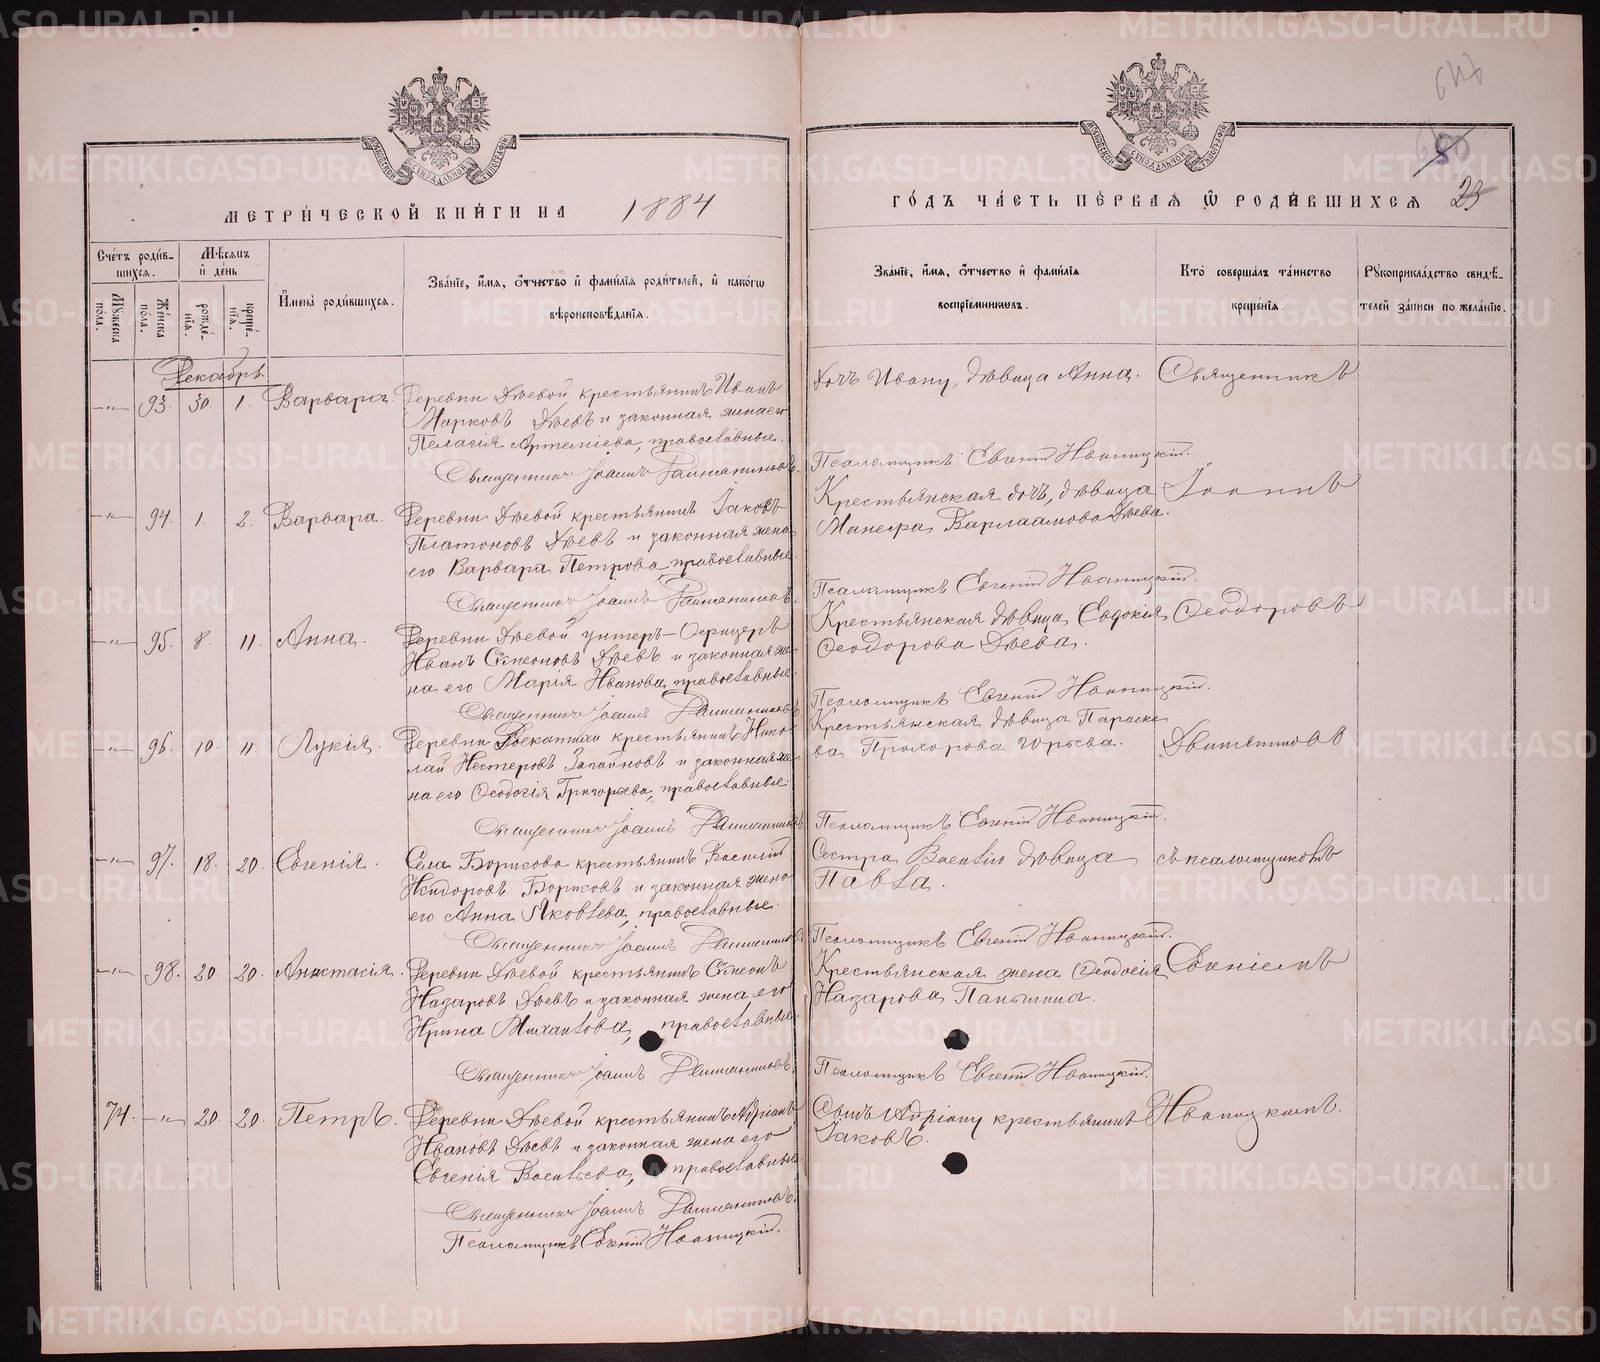 МЕТРИЧЕСКОЙ КНИГИ НА 1884
ГОДЪ ЧАСТЬ ПЕРВАЯ Ѿ РОДИВШИХСЯ 23
Счетъ родившихся.
Мужеска пола.
Женска пола.
Мѣсяцъ и день
рожденія.
крещенія.
Имена родившихся.
Званіе, имя, отчество и фамилія родителей, и какого
вѣроисповѣданія.
Званіе, имя, отчество и фамилія
воспріемниковъ.
Кто совершалъ таинство
крещенія.
Рукоприкладство свидѣ-
телей записи по желанію.
Декабрь.
93. 30. 1. Варвара. Деревни Дѣевой крестьянинъ Иванъ
Марковъ Дѣевъ и законная жена его
Пелагія Артеміева, православные.
Священникъ Іоаннъ
Дочь Ивану, дѣвица Анна.
Псаломщикъ Евгеній Иваницкій.
94. 1. 2. Варвара. Деревни Дѣевой крестьянинъ Іаковъ
Платоновъ Дѣевъ и законная жена
его Варвара Петрова православные.
Священникъ Іоаннъ
Крестьянская дочь, дѣвица
Варлаамова Дѣева.
Псаломщикъ Евгеній Иваницкій.
95. 8. 11. Анна. Деревни Дѣевой унтеръ-Офицеръ
Иванъ Сѷмеоновъ Дѣевъ и законная же-
на его Марія Иванова, православные.
Священникъ Іоаннъ
Крестьянская дѣвица Евдокія
Ѳеодорова Дѣева.
Псаломщикъ Евгеній Иваницкій.
96. 10. 11. Лукія. Деревни крестьянинъ Нико-
лай Нестеровъ и законная же-
на его Ѳеодосія Григорьева, православные.
Священникъ Іоаннъ
Крестьянская дѣвица Параске-
ва Прохорова Юрьева.
Псаломщикъ Евгеній Иваницкій.
97. 18. 20. Евгенія. Села Борисова крестьянинъ Василій
Исидоровъ Борисовъ и законная жена
его Анна Яковлева, православные.
Священникъ Іоаннъ
Сестра Василію дѣвица
Павла.
Псаломщикъ Евгеній Иваницкій.
98. 20. 20. Анастасія. Деревни Дѣевой крестьянинъ Сѷмеонъ
Назаровъ Дѣевъ и законная жена его
Ирина Михаилова, православные.
Священникъ Іоаннъ
Крестьянская жена Ѳеодосія
Назарова Паньшина.
Псаломщикъ Евгеній Иваницкій.
74. 20. 20. Петръ. Деревни Дѣевой крестьянинъ Адріанъ
Ивановъ Дѣевъ и законная жена его
Евгенія Васильева, православные.
Священникъ Іоаннъ
Псаломщикъ Евгеній Иваницкій.
Сынъ Адріану крестьянинъ
Іаковъ.
Священникъ
Іоаннъ
Ѳеодоровъ
съ псаломщикомъ
Евгеніемъ
Иваницкимъ.
METRIKI.GASO-URAL.RU